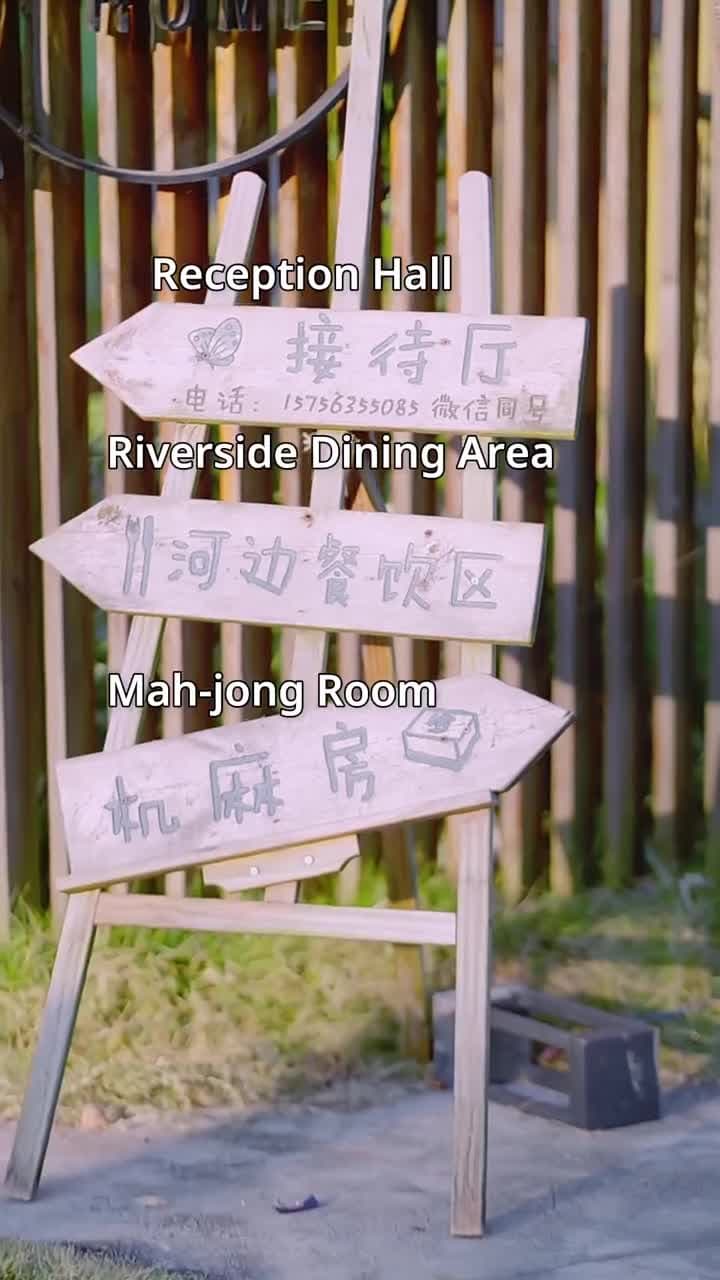 HOME
Reception Hall
接待厅
电话: 15756355085 微信同号
Riverside Dining Area
河边餐饮区
Mah-jong Room
机麻房